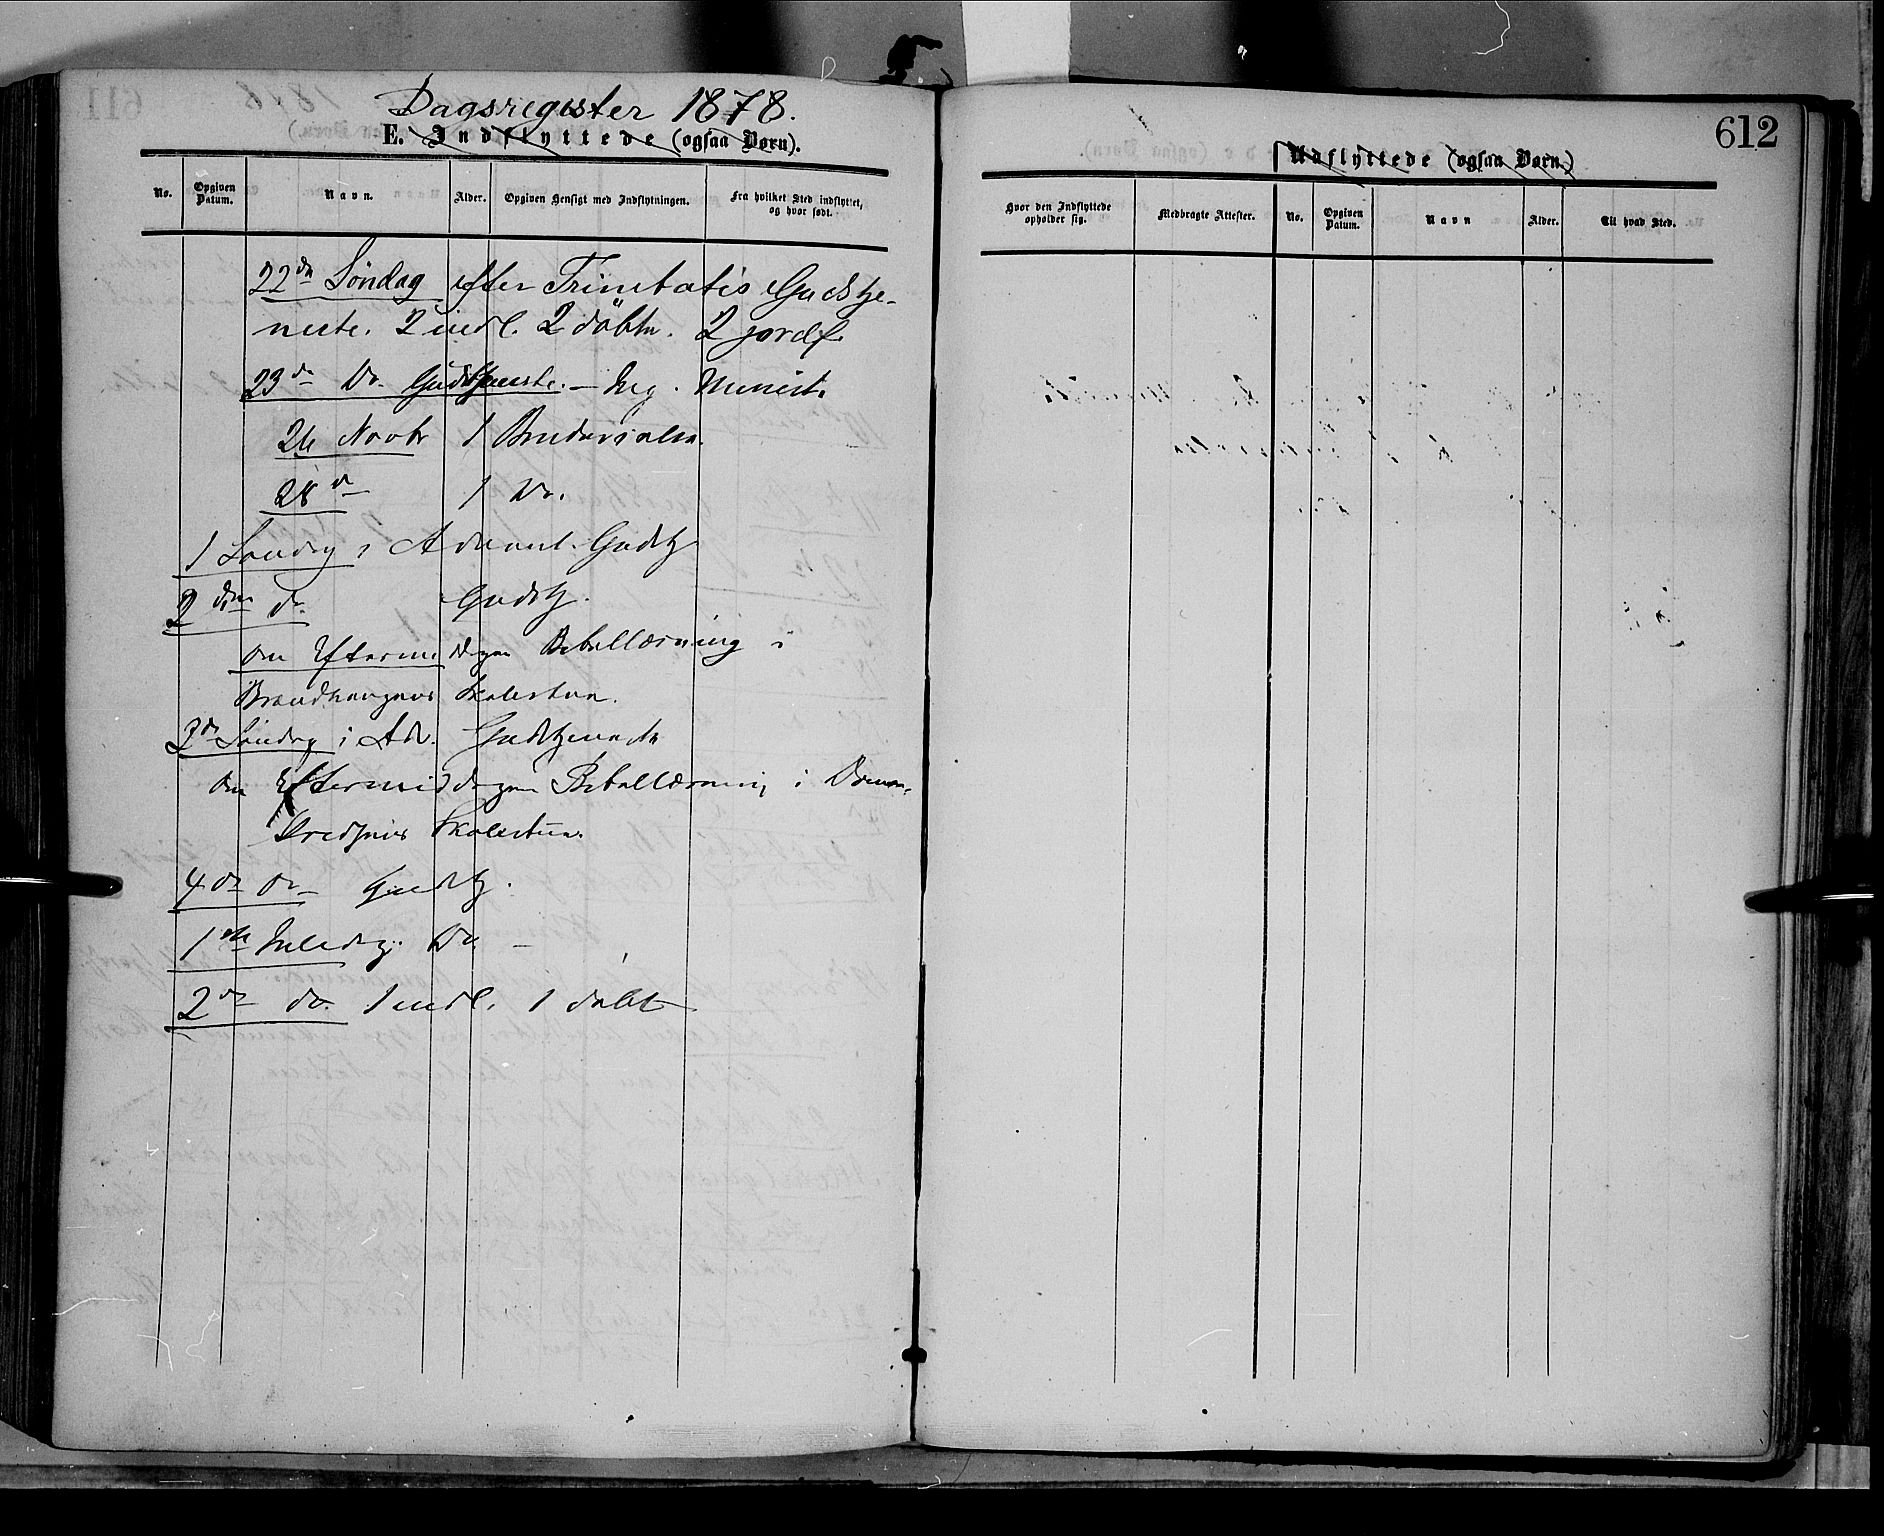 Dagsregister 1878.
E. Indflyttede (ogsaa Børn).
No.
Opgiven Datum.
Navn.
Alder.
Opgiven Hensigt med Indflytningen.
Fra hvilket Sted indflyttet, og hvor født.
22de Søndag efter Trinitatis Gudstje-
neste. 2 indl. 2 döbte. 2 jordf.
23de Do. Gudstjeneste. — Ing. Minist.
26 Novbr 1 Brudevielse.
28de 1 Do.
1 Søndag i Advent. Gudstj
2den do. Gudstj.
om Eftermiddagen Bibellæsning i
Skolestue.
3de Søndag i Adv. Gudstjeneste
om Eftermiddagen Bibellæsning i
Skolestue.
4de do Gudstj.
1ste Juledag. Do —
2de do. 1 indl. 1 döbt
612
Udflyttede (ogsaa Børn)
Hvor den Indflyttede opholder sig.
Medbragte Attester.
No.
Opgiven Datum.
Navn
Alder.
Til hvad Sted.